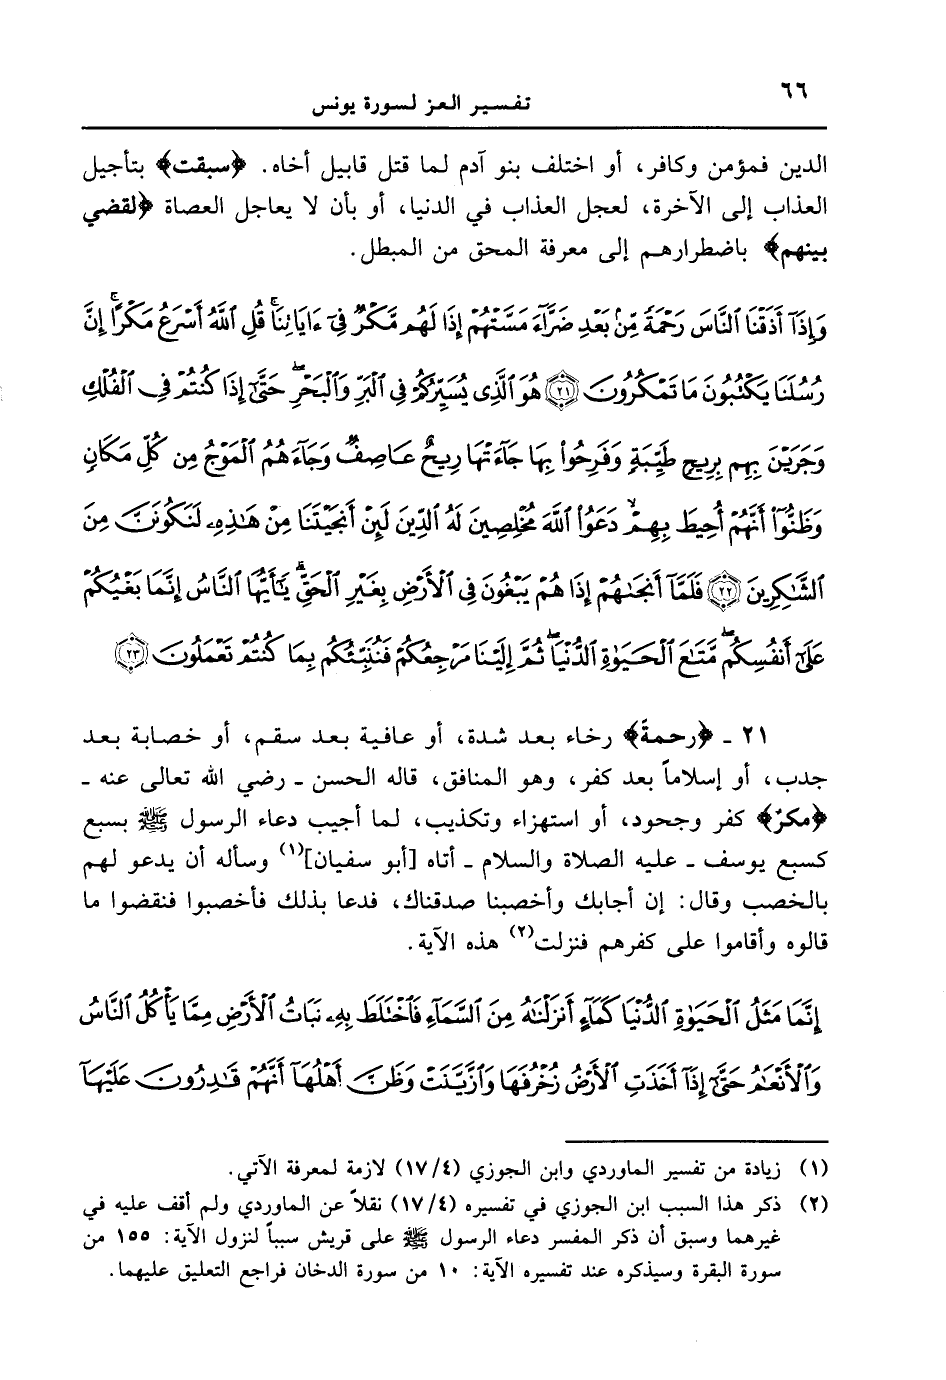 ٦٦
تفسير العز لسورة يونس
الدين فمؤمن وكافر، أو اختلف بنو آدم لما قتل قابيل أخاه. ﴿سبقت﴾ بتأجيل
العذاب إلى الآخرة، لعجل العذاب في الدنيا، أو بأن لا يعاجل العصاة ﴿لقضي
بينهم﴾ باضطرارهم إلى معرفة المحق من المبطل.
وَإِذَآ أَذَقْنَا ٱلنَّاسَ رَحْمَةً مِّنۢ بَعْدِ ضَرَّآءَ مَسَّتْهُمْ إِذَا لَهُم مَّكْرٌ فِىٓ ءَايَاتِنَا ۚ قُلِ ٱللَّهُ أَسْرَعُ مَكْرًا ۚ إِنَّ
رُسُلَنَا يَكْتُبُونَ مَا تَمْكُرُونَ ﴿٢١﴾ هُوَ ٱلَّذِى يُسَيِّرُكُمْ فِى ٱلْبَرِّ وَٱلْبَحْرِ ۖ حَتَّىٰٓ إِذَا كُنتُمْ فِى ٱلْفُلْكِ
وَجَرَيْنَ بِهِم بِرِيحٍ طَيِّبَةٍ وَفَرِحُوا۟ بِهَا جَآءَتْهَا رِيحٌ عَاصِفٌ وَجَآءَهُمُ ٱلْمَوْجُ مِن كُلِّ مَكَانٍ
وَظَنُّوٓا۟ أَنَّهُمْ أُحِيطَ بِهِمْ ۙ دَعَوُا۟ ٱللَّهَ مُخْلِصِينَ لَهُ ٱلدِّينَ لَئِنْ أَنجَيْتَنَا مِنْ هَـٰذِهِۦ لَنَكُونَنَّ مِنَ
ٱلشَّـٰكِرِينَ ﴿٢٢﴾ فَلَمَّآ أَنجَىٰهُمْ إِذَا هُمْ يَبْغُونَ فِى ٱلْأَرْضِ بِغَيْرِ ٱلْحَقِّ ۗ يَـٰٓأَيُّهَا ٱلنَّاسُ إِنَّمَا بَغْيُكُمْ
عَلَىٰٓ أَنفُسِكُم ۖ مَّتَـٰعَ ٱلْحَيَوٰةِ ٱلدُّنْيَا ۖ ثُمَّ إِلَيْنَا مَرْجِعُكُمْ فَنُنَبِّئُكُم بِمَا كُنتُمْ تَعْمَلُونَ ﴿٢٣﴾
٢١ ـ ﴿رحمةً﴾ رخاء بعد شدة، أو عافية بعد سقم، أو خصابة بعد
جدب، أو إسلاماً بعد كفر، وهو المنافق، قاله الحسن ـ رضي الله تعالى عنه ـ
﴿مكرٌ﴾ كفر وجحود، أو استهزاء وتكذيب، لما أجيب دعاء الرسول ﷺ بسبع
كسبع يوسف ـ عليه الصلاة والسلام ـ أتاه [أبو سفيان](١) وسأله أن يدعو لهم
بالخصب وقال: إن أجابك وأخصبنا صدقناك، فدعا بذلك فأخصبوا فنقضوا ما
قالوه وأقاموا على كفرهم فنزلت(٢) هذه الآية.
إِنَّمَا مَثَلُ ٱلْحَيَوٰةِ ٱلدُّنْيَا كَمَآءٍ أَنزَلْنَـٰهُ مِنَ ٱلسَّمَآءِ فَٱخْتَلَطَ بِهِۦ نَبَاتُ ٱلْأَرْضِ مِمَّا يَأْكُلُ ٱلنَّاسُ
وَٱلْأَنْعَـٰمُ حَتَّىٰٓ إِذَآ أَخَذَتِ ٱلْأَرْضُ زُخْرُفَهَا وَٱزَّيَّنَتْ وَظَنَّ أَهْلُهَآ أَنَّهُمْ قَـٰدِرُونَ عَلَيْهَآ
(١) زيادة من تفسير الماوردي وابن الجوزي (٤/ ١٧) لازمة لمعرفة الآتي.
(٢) ذكر هذا السبب ابن الجوزي في تفسيره (٤/ ١٧) نقلاً عن الماوردي ولم أقف عليه في
غيرهما وسبق أن ذكر المفسر دعاء الرسول ﷺ على قريش سبباً لنزول الآية: ١٥٥ من
سورة البقرة وسيذكره عند تفسيره الآية: ١٠ من سورة الدخان فراجع التعليق عليهما.